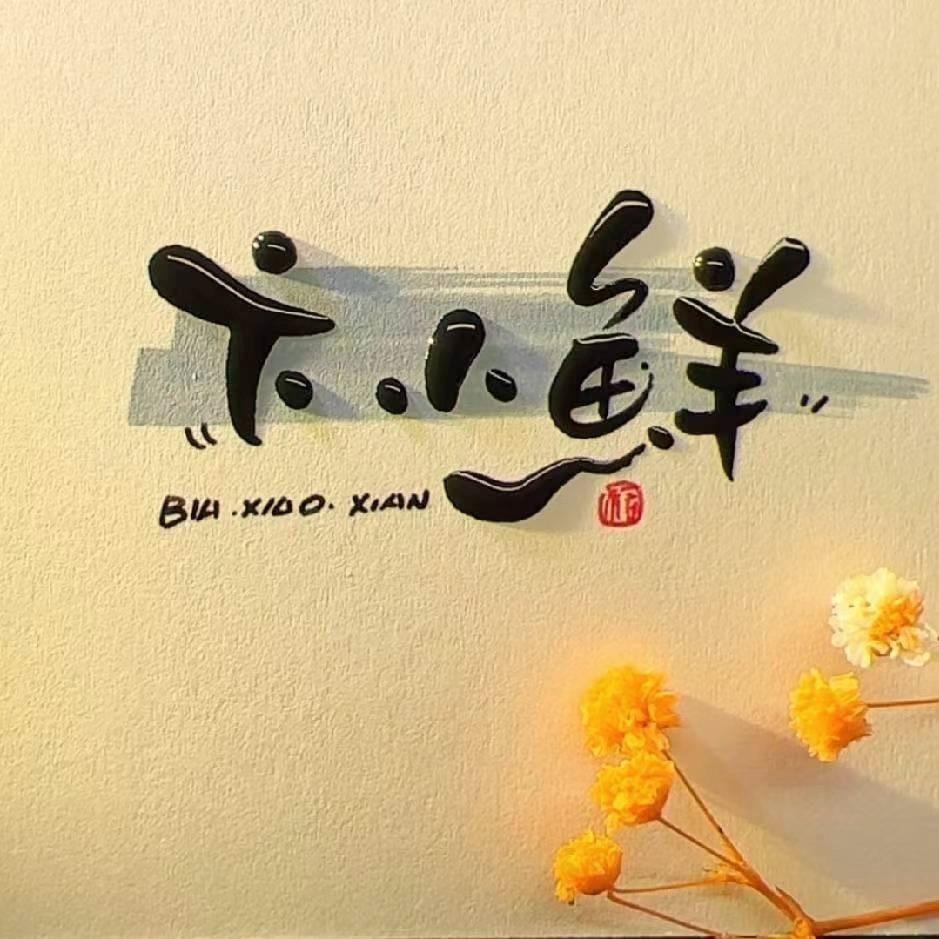 卞小鲜
BIA.XIAO.XIAN